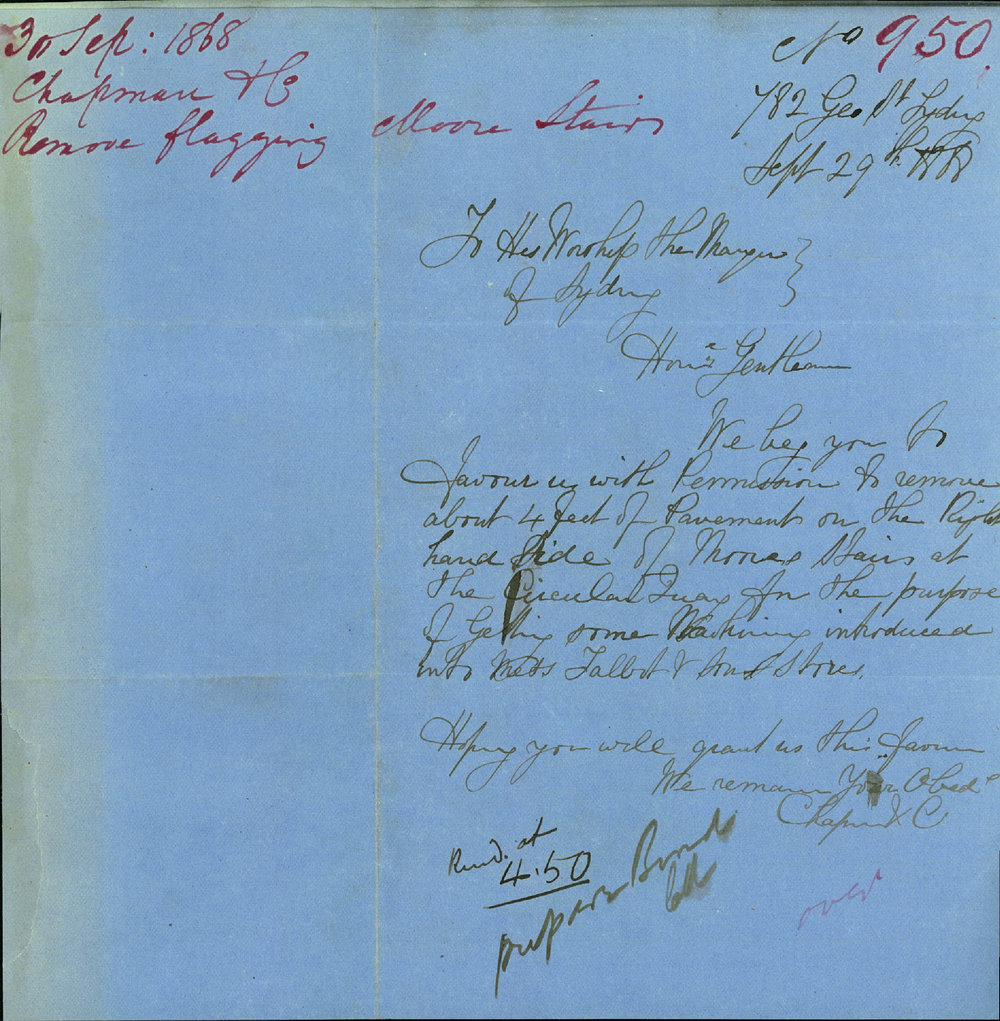 30 Sep: 1868
Chapman & Co
Remove flagging Moore Stairs
No 950.
782 Geo St Sydny
Sept 29th 1868
To His Worship the Mayor
of Sydny
Honle Gentlemen
We beg you to
favour us with Permission to remove
about 4 feet of Pavement on the Right
hand Side of Moores Stairs at
the Circular Quay for the purpose
of Getting some Machinery introduced
into Mess Talbot & Sons Stores.
Hoping you will grant us this favour
We remain Your Obed
Chapman & C
Recd. at
4.50
prepare Bond
over